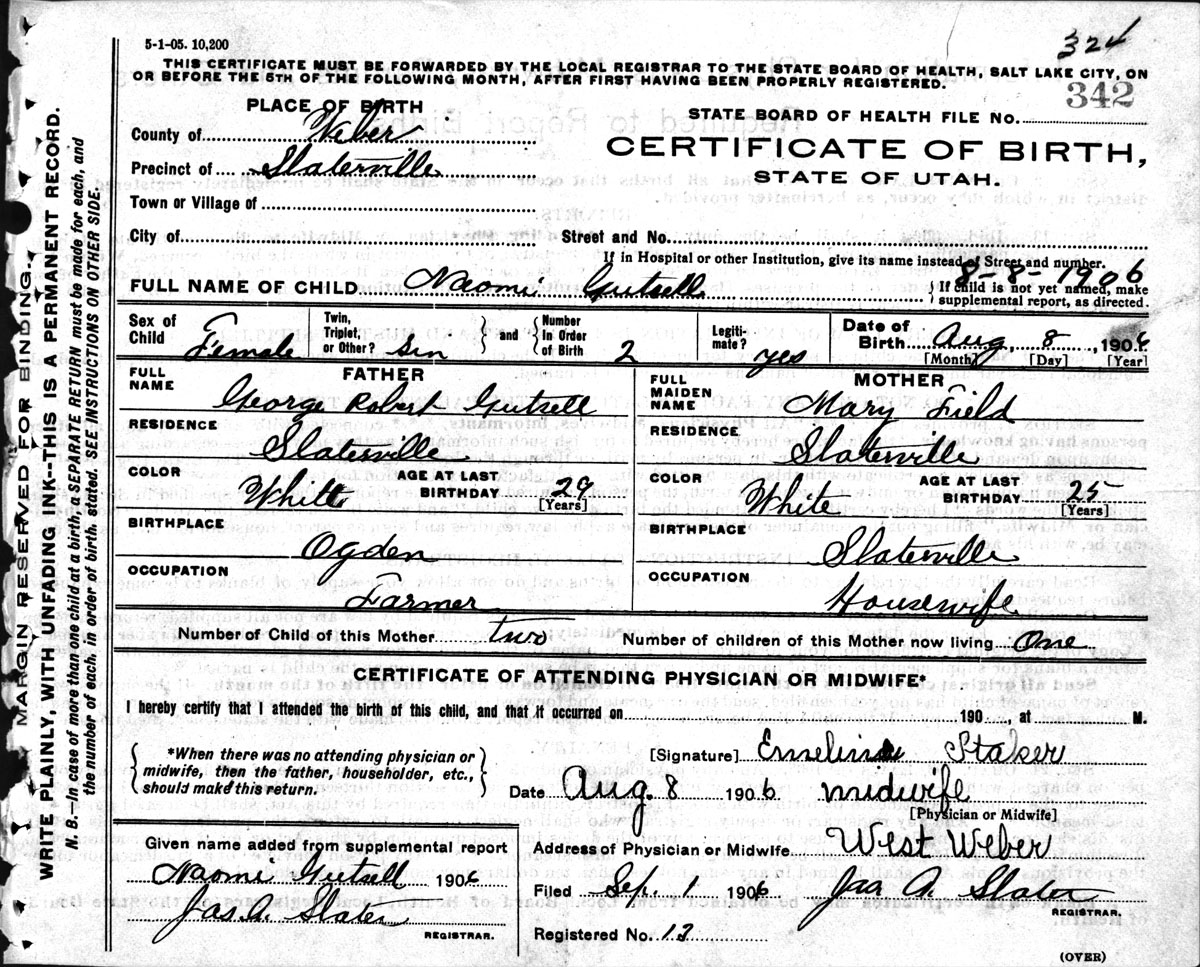 324
5-1-05. 10,200
THIS CERTIFICATE MUST BE FORWARDED BY THE LOCAL REGISTRAR TO THE STATE BOARD OF HEALTH, SALT LAKE CITY, ON
OR BEFORE THE 5TH OF THE FOLLOWING MONTH, AFTER FIRST HAVING BEEN PROPERLY REGISTERED.
342
PLACE OF BIRTH
STATE BOARD OF HEALTH FILE No.
County of Weber
CERTIFICATE OF BIRTH,
Precinct of Slaterville
STATE OF UTAH.
Town or Village of
City of
Street and No.
If in Hospital or other Institution, give its name instead of Street and number.
8-8-1906
FULL NAME OF CHILD Naomi Gutsell
If child is not yet named, make
supplemental report, as directed.
Sex of Child Female
Twin, Triplet, or Other? Sin
and
Number In Order of Birth 2
Legiti-mate? yes
Date of Birth Aug. 8, 1906
[Month] [Day] [Year]
FATHER
FULL NAME George Robert Gutsell
RESIDENCE Slaterville
COLOR White
AGE AT LAST BIRTHDAY 29
[Years]
BIRTHPLACE
Ogden
OCCUPATION
Farmer
MOTHER
FULL MAIDEN NAME Mary Field
RESIDENCE Slaterville
COLOR White
AGE AT LAST BIRTHDAY 25
[Years]
BIRTHPLACE
Slaterville
OCCUPATION
Housewife
Number of Child of this Mother two
Number of children of this Mother now living One
CERTIFICATE OF ATTENDING PHYSICIAN OR MIDWIFE*
I hereby certify that I attended the birth of this child, and that it occurred on 190 , at M.
*When there was no attending physician or
midwife, then the father, householder, etc.,
should make this return.
[Signature] Emeline Staker
Date Aug. 8 1906 midwife
[Physician or Midwife]
Address of Physician or Midwife West Weber
Given name added from supplemental report
Naomi Gutsell 1906
Jas. A. Slater
REGISTRAR.
Filed Sep. 1 1906 Jas A. Slater
REGISTRAR.
Registered No. 12
(OVER)
MARGIN RESERVED FOR BINDING.
WRITE PLAINLY, WITH UNFADING INK--THIS IS A PERMANENT RECORD.
N. B.--In case of more than one child at a birth, a SEPARATE RETURN must be made for each, and
the number of each, in order of birth, stated. SEE INSTRUCTIONS ON OTHER SIDE.